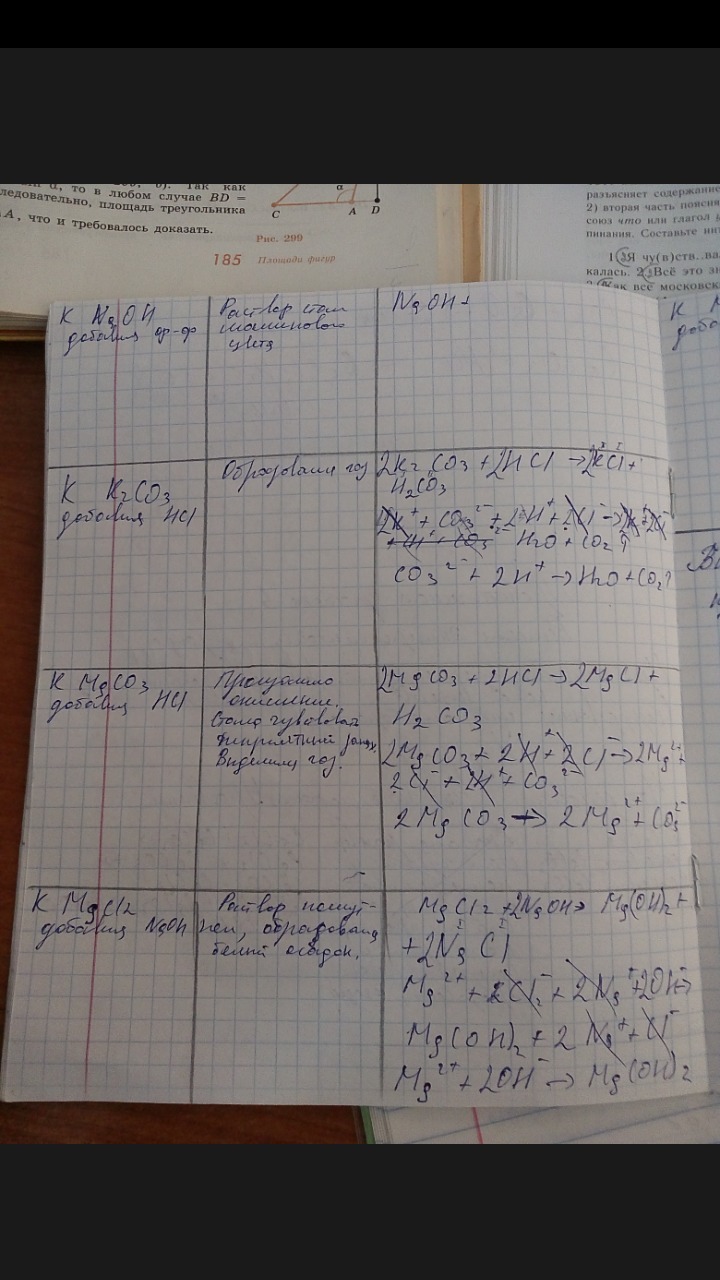 , то в любом случае BD =
ледовательно, площадь треугольника
A, что и требовалось доказать.
α
C A D
Рис. 299
185 Площади фигур
разъясняет содержание
2) вторая часть поясня
союз что или глагол
пинания. Составьте
1 Я чу(в)ств..ва
калась. 2 Всё это
Как всё московск
К NaOH
добавил фр-фр
Раствор стал
малинового
цвета
NaOH+
К K2CO3
добавил HCl
Образовался газ
2K2CO3 + 2HCl → 2KCl +
H2CO3
2K⁺ + CO3²⁻ + 2H⁺ + 2Cl⁻ → 2K⁺ + 2Cl⁻
H2O + CO2↑
CO3²⁻ + 2H⁺ → H2O + CO2↑
К MgCO3
добавил HCl
Стал чувствовать
неприятный запах.
Выделился газ.
2MgCO3 + 2HCl → 2MgCl +
H2CO3
2MgCO3 + 2H⁺ + 2Cl⁻ → 2Mg²⁺ +
2Cl⁻ + 2H⁺ + CO3²⁻
2MgCO3 → 2Mg²⁺ + CO3²⁻
К MgCl2
добавил NaOH
Раствор помут-
нел, образовался
белый осадок.
MgCl2 + 2NaOH → Mg(OH)2 +
+ 2NaCl
Mg²⁺ + 2Cl⁻ + 2Na⁺ + 2OH⁻ →
Mg(OH)2 + 2Na⁺ + Cl⁻
Mg²⁺ + 2OH⁻ → Mg(OH)2